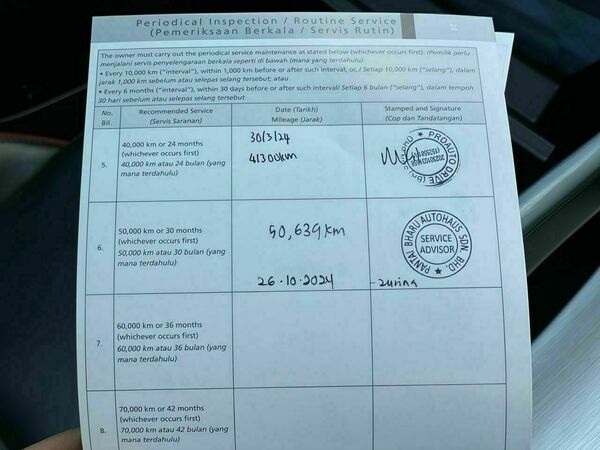 Periodical Inspection / Routine Service
(Pemeriksaan Berkala / Servis Rutin)
The owner must carry out the periodical service maintenance as stated below (whichever occurs first): /Pemilik perlu
menjalani servis penyelengaraan berkala seperti di bawah (mana yang terdahulu)
• Every 10,000 km ("interval"), within 1,000 km before or after such interval; or, / Setiap 10,000 km ("selang"), dalam
jarak 1,000 km sebelum atau selepas selang tersebut; atau
• Every 6 months ("interval"), within 30 days before or after such interval/ Setiap 6 bulan ("selang"), dalam tempoh
30 hari sebelum atau selepas selang tersebut
No.
Bil.
Recommended Service
(Servis Saranan)
Date (Tarikh)
Mileage (Jarak)
Stamped and Signature
(Cop dan Tandatangan)
5.
40,000 km or 24 months
(whichever occurs first)
40,000 km atau 24 bulan (yang
mana terdahulu)
30/3/24
41300km
PROAUTO DRIVE
6.
50,000 km or 30 months
(whichever occurs first)
50,000 km atau 30 bulan (yang
mana terdahulu)
50,639 km
26.10.2024
PANTAI BHARU AUTOHAUS SDN. BHD.
SERVICE
ADVISOR
-zurina
7.
60,000 km or 36 months
(whichever occurs first)
60,000 km atau 36 bulan (yang
mana terdahulu)
8.
70,000 km or 42 months
(whichever occurs first)
70,000 km atau 42 bulan (yang
mana terdahulu)